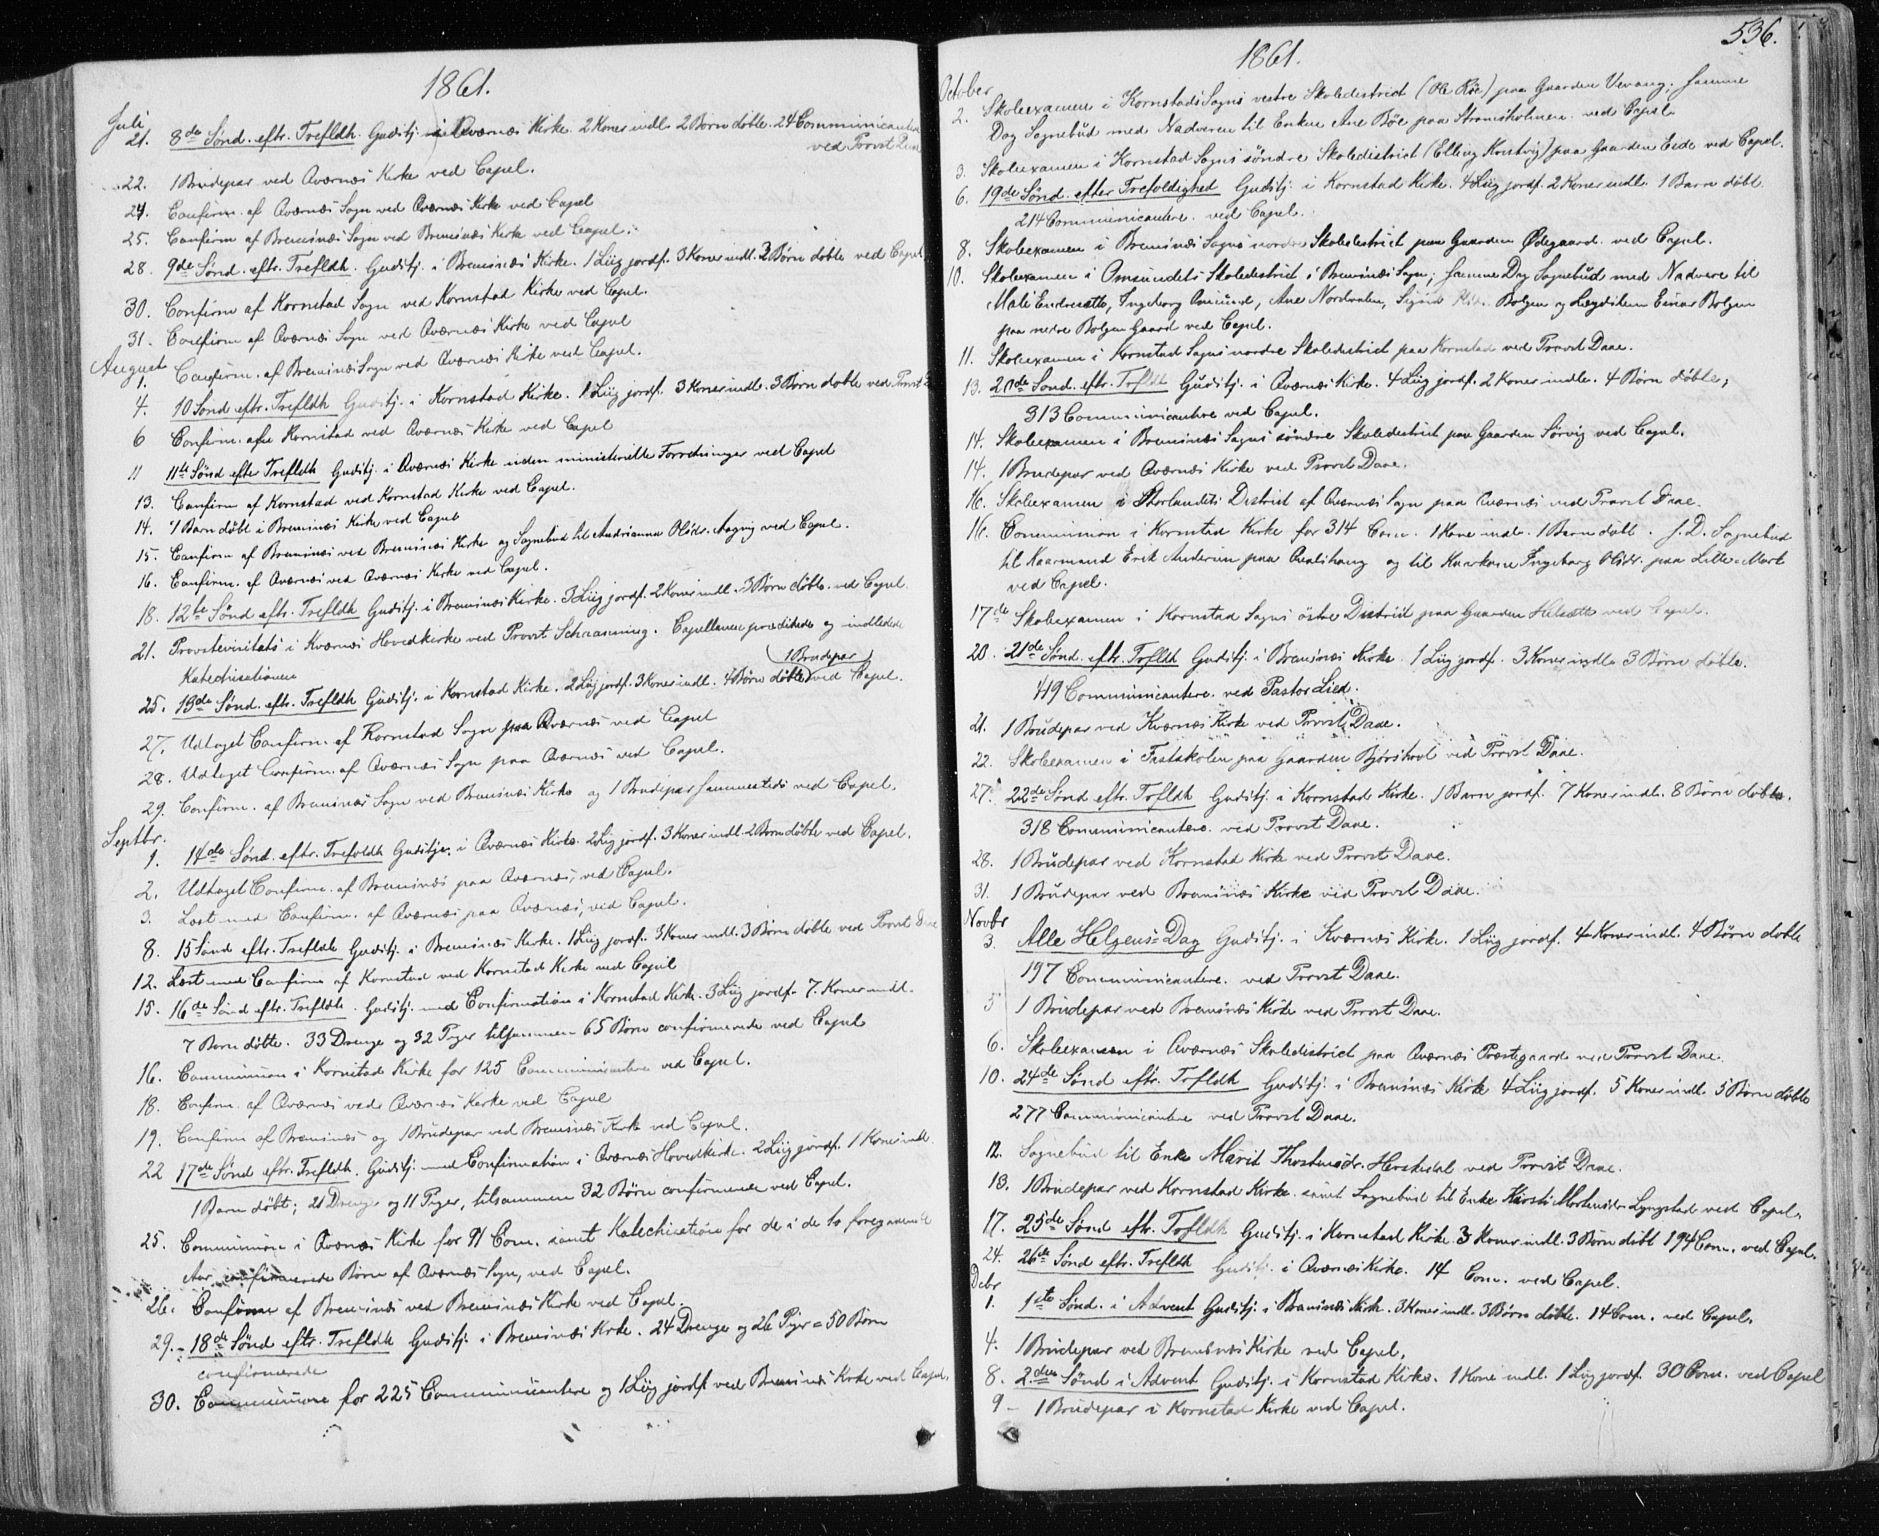 1861.
Juli
21. 8de Sønd. eftr. Trefldh. Gudstj. i Qværnæs Kirke. 2 Koner indl. 2 Børn døbte. 24 Communicantere
ved Provst Daae
22. 1 Brudepar ved Qværnæs Kirke ved Capel.
24. Confirm. af Qværnæs Sogn ved Qværnæs Kirke ved Capel
25. Confirm af Bremsnæs Sogn ved Bremsnæs Kirke ved Capel.
28. 9de Sønd. eftr. Trefldh. Gudstj. i Bremsnæs Kirke. 1 Liig jordf. 3 Koner indl. 3 Børn døbte ved Capel
30. Confirm af Kornstad Sogn ved Kornstad Kirke ved Capel.
31. Confirm af Qværnæs Sogn ved Qværnæs Kirke ved Capel
August
1. Confirm. af Bremsnæs Sogn ved Qværnæs Kirke ved Capel.
4. 10 Sønd eftr. Trefldh Gudstj. i Kornstad Kirke. 1 Liig jordf. 3 Koner indl. 3 Børn døbte ved Provst
6 Confirm. af Kornstad ved Qværnæs Kirke ved Capel
11 11te Sønd efter Trefldh Gudstj. i Qværnæs Kirke uden ministerielle Forretninger ved Capel
13. Confirm af Kornstad ved Kornstad Kirke ved Capel.
14. 1 Barn døbt i Bremsnæs Kirke ved Capel
15. Confirm af Bremsnæs ved Bremsnæs Kirke og Sognebud til Andrianna Olsdr. ved Capel.
16. Confirm. af Qværnæs ved Qværnæs Kirke ved Capel.
18. 12te Sønd eftr. Trefldh Gudstj. i Bremsnæs Kirke. 3 Liig jordf. 2 Koner indl. 3 Børn døbte. ved Capel
21. Provstevisitats i Kværnæs Hovedkirke ved Provst Schraanning. Capellanen prædikede og indledede
Katechisationen
1 Brudepar
25. 13de Sønd. eftr. Trefldh Gudstj. i Kornstad Kirke. 2 Liig jordf. 3 Koner indl. 4 Børn døbte ved Capel.
27. Udtaget Confirm. af Kornstad Sogn paa Qværnæs ved Capel
28. Udtaget Confirm. af Qværnæs Sogn paa Qværnæs ved Capel.
29. Confirm. af Bremsnæs Sogn ved Bremsnæs Kirke og 1 Brudepar sammesteds ved Capel.
Septbr.
1. 14de Sønd. eftr. Trefoldh Gudstje. i Qværnæs Kirke. 2 Liig jordf. 3 Koner indl. 2 Børn døbte ved Capel.
2. Udtaget Confirm. af Bremsnæs paa Qværnæs, ved Capel.
3. Læst med Confirm. af Qværnæs paa Qværnæs, ved Capel.
8. 15 Sønd eftr. Trefldh Gudstj. i Bremsnæs Kirke. 1 Liig jordf. 3 Koner indl. 3 Børn døbte ved Provst Daae
12. Læst med Confirm af Kornstad ved Kornstad Kirke ved Capel
15. 16de Sønd eftr. Trefldh. Gudstj. med Confirmation i Kornstad Kirk. 3 Liig jordf. 7. Koner indl.
7 Børn døbte. 33 Drenge og 32 Piger tilsammen 65 Børn confirmerede ved Capel
16. Communion i Kornstad Kirke for 125 Communicantere ved Capel.
18. Confirm. af Qværnæs ved Qværnæs Kirke ved Capel
19. Confirm af Bremsnæs og 1 Brudepar ved Bremsnæs Kirk ved Capel.
22 17de Sønd eftr. Trefldh. Gudstj. med Confirmation i Qværnæs Hovedkirke. 2 Liig jordf. 1 Kone indl.
1 Barn døbt; 21 Drenge og 11 Piger, tilsammen 32 Børn confirmerede ved Capel.
25. Communion i Qværnæs Kirke for 91 Com. samt Katechisation for de i de to foregaaende
Aar confirmerede Børn af Qværnæs Sogn, ved Capel.
26. Confirm af Bremsnæs ved Bremsnæs Kirke ved Capel.
29. 18de Sønd eftr. Trefldh Gudstj. i Bremsnæs Kirke. 24 Drenge og 26 Piger = 50 Børn
confirmerede
30. Communion for 225 Communicantere og 1 Liig jordf. ved Bremsnæs Kirke ved Capel.
536.
1861.
October
2. Skoleexamen i Kornstads Sogns vestre Skoledistrict (Ole Röe) paa Gaarden Vevang; samme
Dag Sognebud med Nadveren til Enken Ane Böe paa Strømsholmen. ved Capel.
3. Skoleexamen i Kornstad Sogns søndre Skoledistrict (Elling) paa Gaarden Eide ved Capel.
6. 19de Sønd. efter Trefoldighed Gudstj. i Kornstad Kirke. 4 Liig jordf. 2 Koner indl. 1 Barn døbt.
214 Communicantere. ved Capel.
8. Skoleexamen i Bremsnæs Sogns nordre Skoledistrict paa Gaarden Ødegaard. ved Capel.
10. Skoleexamen i Omsundets Skoledistrict i Bremsnæs Sogn; samme Dag Sognebud med Nadvere til
Mali, Ingeborg Omsund, Ane Nordvalen, Bolgen og Lægdslem Einar Bolgen
paa nedre Bolgen Gaard ved Capel.
11. Skoleexamen i Kornstad Sogns nordre Skoledistrict paa Kornstad ved Provst Daae.
13. 20de Sønd. eftr. Trfldh Gudstj. i Qværnæs Kirke. 4 Liig jordf. 2 Koner indl. 4 Børn døbte;
313 Communicantere ved Capel.
14. Skoleexamen i Bremsnæs Sogns søndre Skoledistrict paa Gaarden Sørvig ved Capel.
14. 1 Brudepar ved Qværnæs Kirke ved Provst Daae.
16. Skoleexamen i Storlandets District af Qværnæs Sogn paa Qværnæs ved Provst Daae.
16. Communion i Kornstad Kirke for 314 Com. 1 Kone indl. 1 Barn døbt. S. D. Sognebud
til Kaarmand Erik Andersen paa og til Kaarkone Ingeborg Olsdr. paa Lille
ved Capel.
17de Skoleexamen i Kornstad Sogns östre District paa Gaarden Helsætte ved Capel.
20. 21de Sønd. eftr. Trfldh Gudstj. i Bremsnæs Kirke. 1 Liig jordf. 3 Koner indl. 3 Børn døbte.
419 Communicantere. ved Pastor Lied.
21. 1 Brudepar ved Kværnæs Kirke ved Provst Daae.
22. Skoleexamen i Fastskolen paa Gaarden ved Provst Daae.
27. 22de Sønd eftr. Trfldh Gudstj. i Kornstad Kirke. 1 Barn jordf. 7 Koner indl. 8 Børn døbte.
318 Communicantere. ved Provst Daae.
28. 1 Brudepar ved Kornstad Kirke ved Provst Daae.
31. 1 Brudepar ved Bremsnæs Kirke ved Provst Daae.
Novbr
3. Alle Helgens-Dag Gudstj. i Kværnæs Kirke. 1 Liig jordf. 4 Koner indl. 4 Børn døbte
197 Communicantere. ved Provst Daae.
5 1 Brudepar ved Bremsnæs Kirke ved Provst Daae.
6. Skoleexamen i Qværnæs Skoledistrict paa Qværnæs Præstegaard ved Provst Daae.
10. 24de Sønd eftr. Trfldh Gudstj. i Bremsnæs Kirke 4 Liig jordf. 5 Koner indl. 5 Børn døbte
277 Communicantere ved Provst Daae.
12. Sognebud til Enke Marit Thorstensdr. ved Provst Daae.
13. 1 Brudepar ved Kornstad Kirke. samt Sognebud til Enke Kirsti Mortensdr. Lyngstad ved Capel.
17. 25de Sønd eftr. Trfldh Gudstj. i Kornstad Kirke. 3 Koner indl. 3 Børn døbt 194 Com. ved Capel.
24. 26de Sønd eftr. Trefldh Gudstj. i Qværnæs Kirke. 14 Com. ved Capel.
Dcbr
1. 1ste Sønd. i Advent Gudstj. i Bremsnæs Kirk. 3 Koner indl. 3 Børn døbte. 14 Com. ved Capel.
4. 1 Brudepar ved Bremsnæs Kirke ved Capel.
8. 2den Sønd i Advent Gudstj. i Kornstad Kirke. 1 Kone indl. 1 Liig jordf. 30 Com. ved Capel
9 – 1 Brudepar i Kornstad Kirke ved Capel.